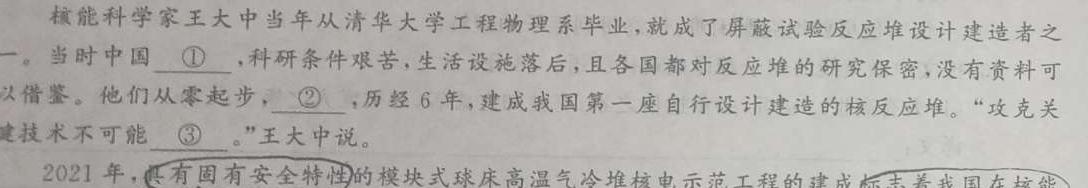 核能科学家王大中当年从清华大学工程物理系毕业,就成了屏蔽试验反应堆设计建造者之
一。当时中国 ① ,科研条件艰苦,生活设施落后,且各国都对反应堆的研究保密,没有资料可
以借鉴。他们从零起步, ② ,历经6年,建成我国第一座自行设计建造的核反应堆。“攻克关
键技术不可能 ③ 。”王大中说。
2021年,具有固有安全特性的模块式球床高温气冷堆核电示范工程的建成标志着我国在核能